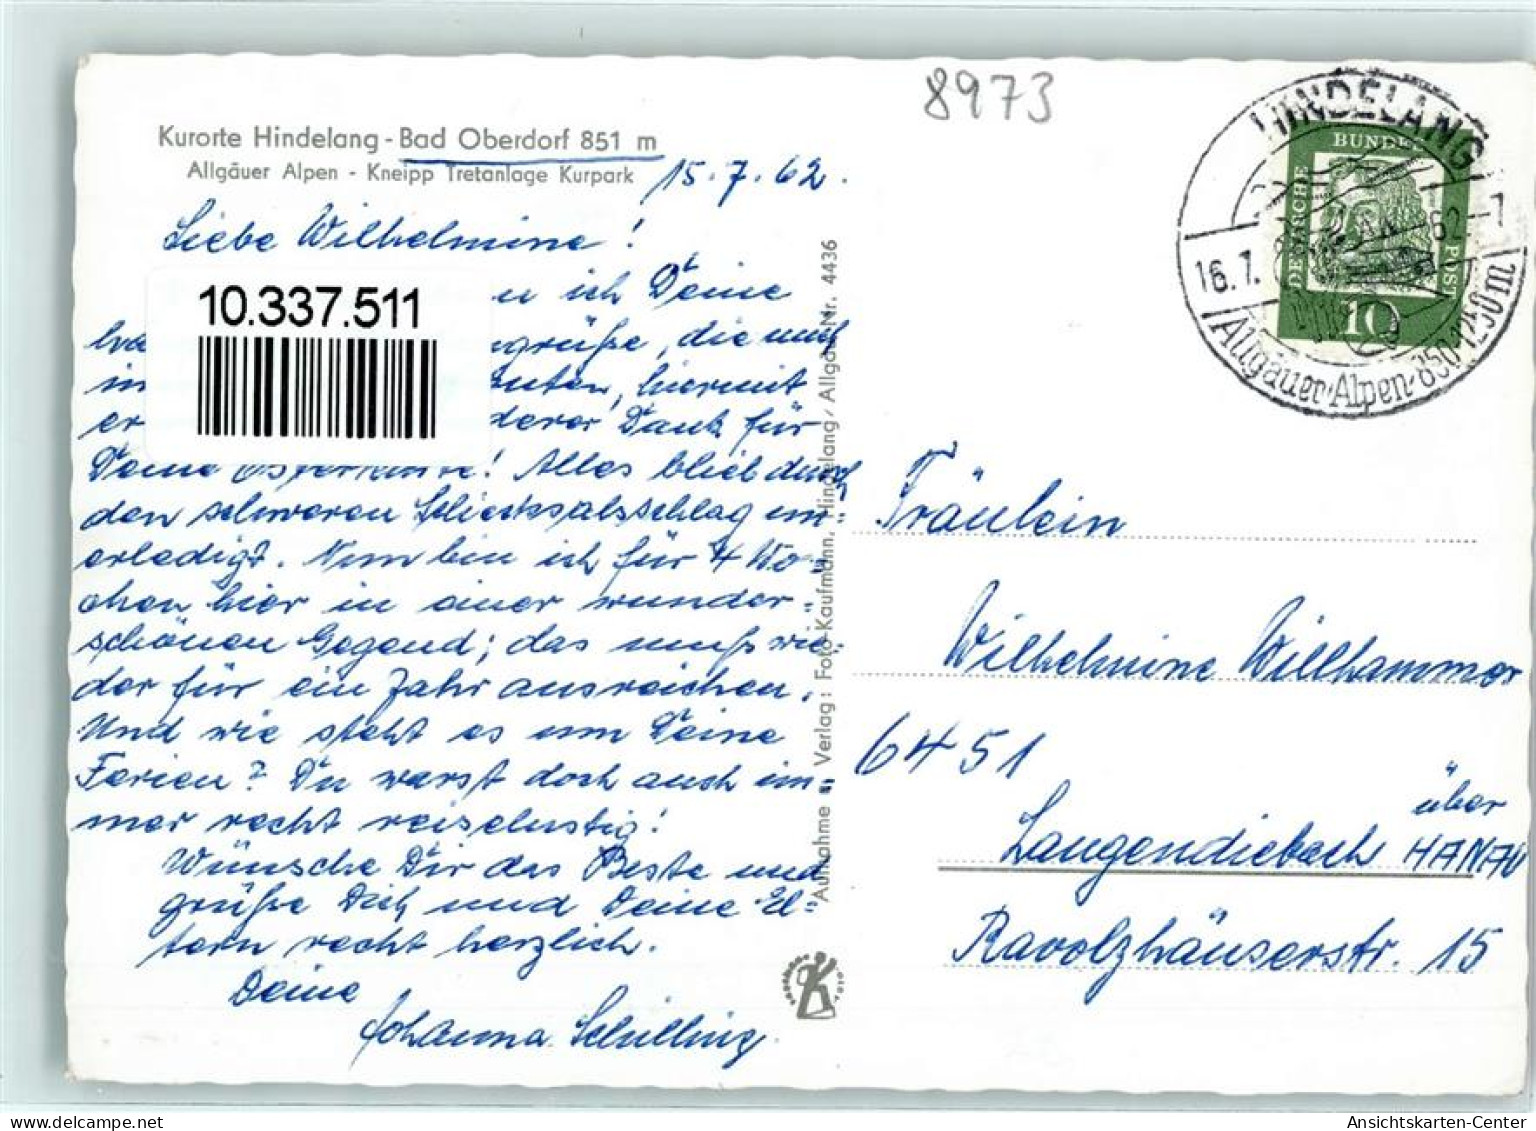 8973
Kurorte Hindelang - Bad Oberdorf 851 m
Allgäuer Alpen - Kneipp Tretanlage Kurpark
15.7.62.
Liebe Wilhelmine!
ich Deine
grüße, die mich
in
hiermit
er Dank für
Deine Ostergrüße! Alles blieb durch
den schweren Schicksalsschlag un=
erledigt. Nun bin ich für 4 Wo=
chen hier in einer wunder=
schönen Gegend; das muß wie=
der für ein Jahr ausreichen.
Und wie steht es um Deine
Ferien? Du warst doch auch im=
mer recht reiselustig!
Wünsche Dir das Beste und
grüße Dich und Deine El=
tern recht herzlich.
Deine
Johanna Schilling
10.337.511
Aufnahme u. Verlag: Foto-Kaufmann, Hindelang/Allgäu Nr. 4436
HINDELANG
16.7.62-7
Allgäuer Alpen 850-1250m
DEUTSCHE BUNDESPOST
10
Fräulein
Wilhelmine Willhammer
6451
Langendiebach über HANAU
Ravolzhäuserstr. 15
Ansichtskarten-Center